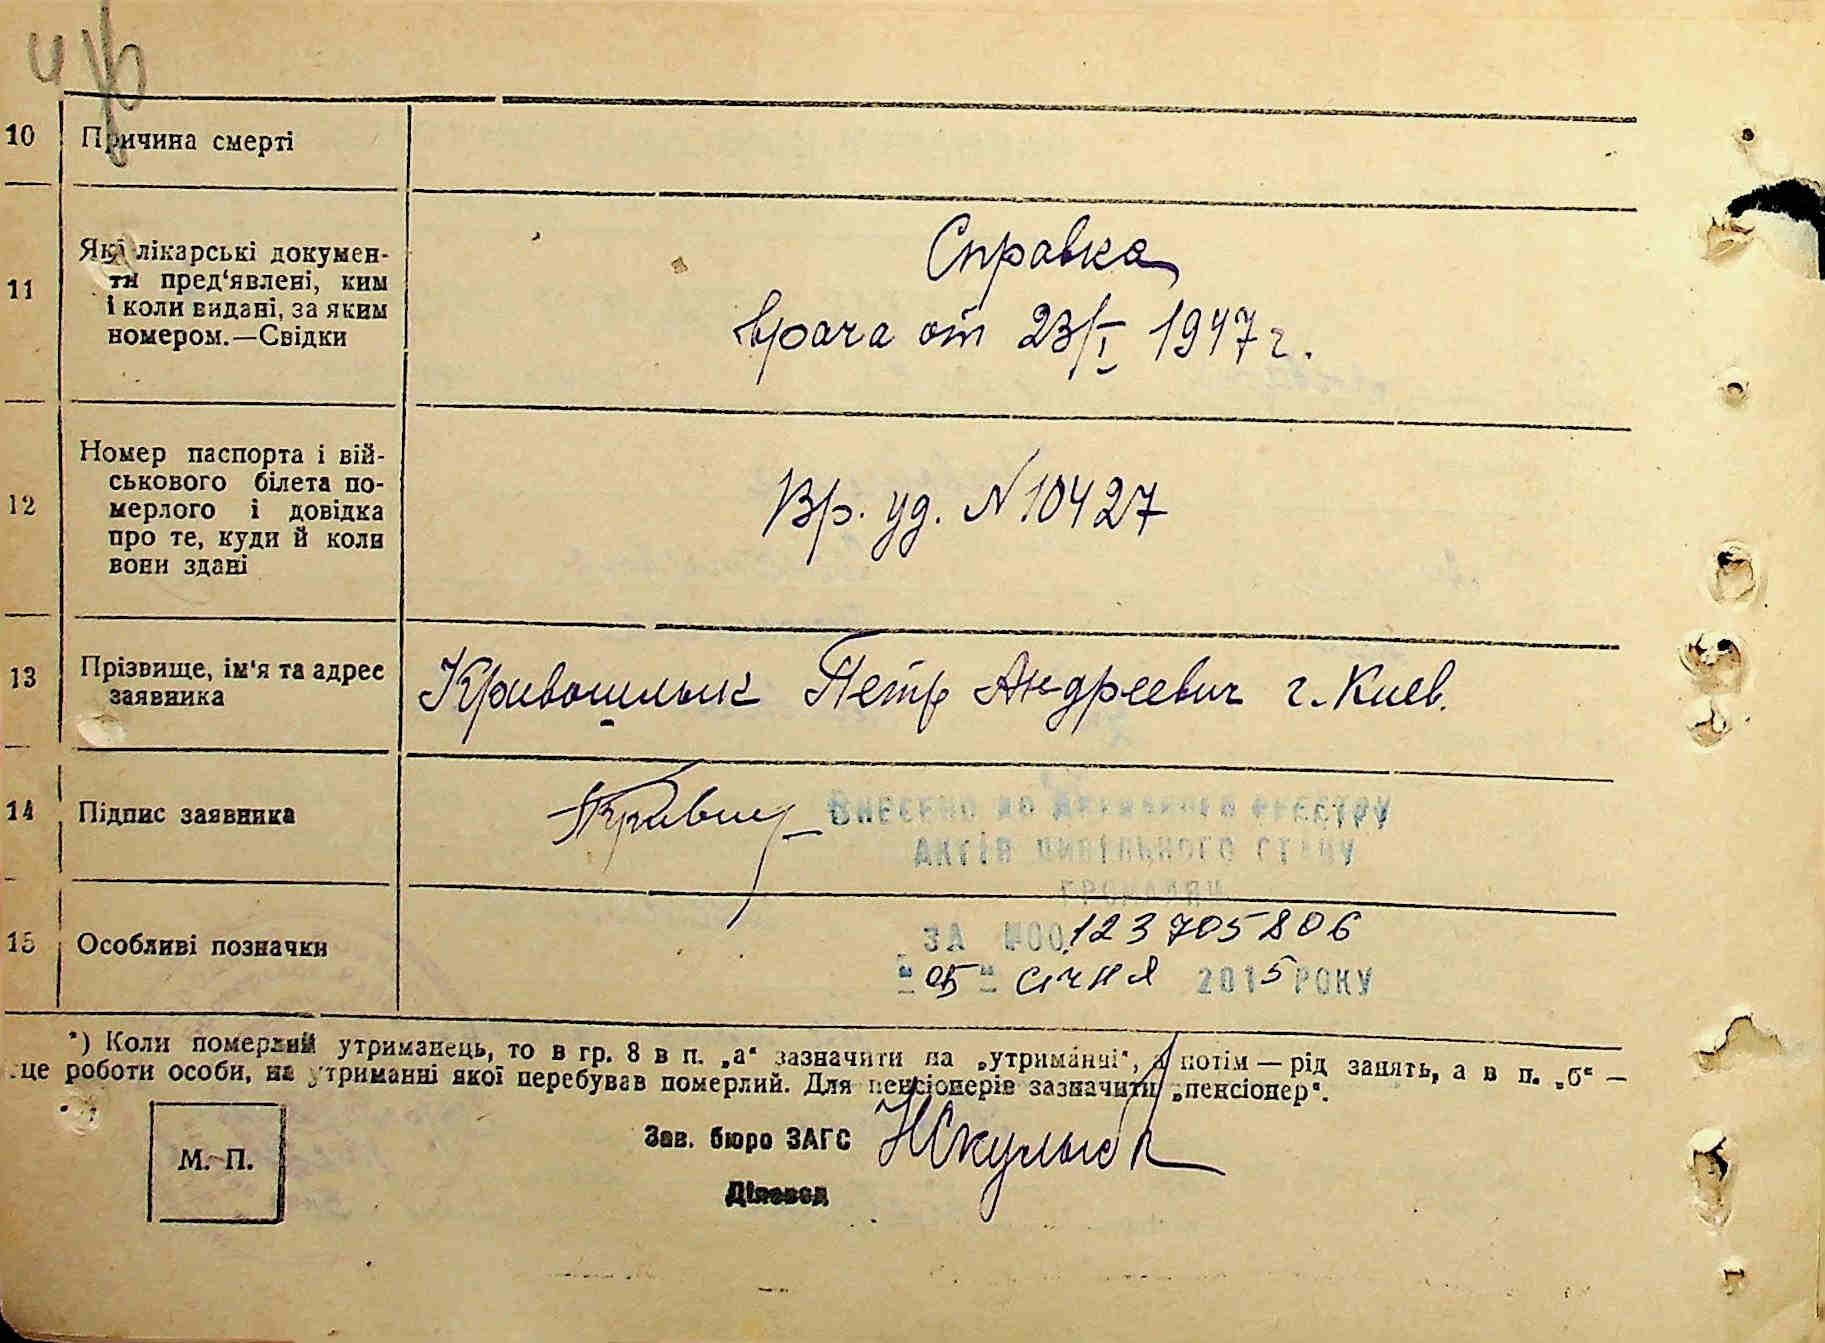 10 Причина смерті
11 Які лікарські докумен-
ти пред'явлені, ким
і коли видані, за яким
номером.—Свідки
Справка
врача от 23/I 1947 г.
12 Номер паспорта і вій-
ськового білета по-
мерлого і довідка
про те, куди й коли
вони здані
Вр. уд. N 10427
13 Прізвище, ім'я та адрес
заявника
Петр Андреевич г. Киев.
14 Підпис заявника
Внесено до Державного реєстру
актів цивільного стану
громадян
15 Особливі позначки
ЗА №00123705806
"05" січня 2015 РОКУ
*) Коли померлий утриманець, то в гр. 8 в п. „а“ зазначити на „утриманні“, а потім — рід занять, а в п. „б“ —
це роботи особи, на утриманні якої перебував померлий. Для пенсіонерів зазначити „пенсіонер“.
М. П.
Зав. бюро ЗАГС
Діловод